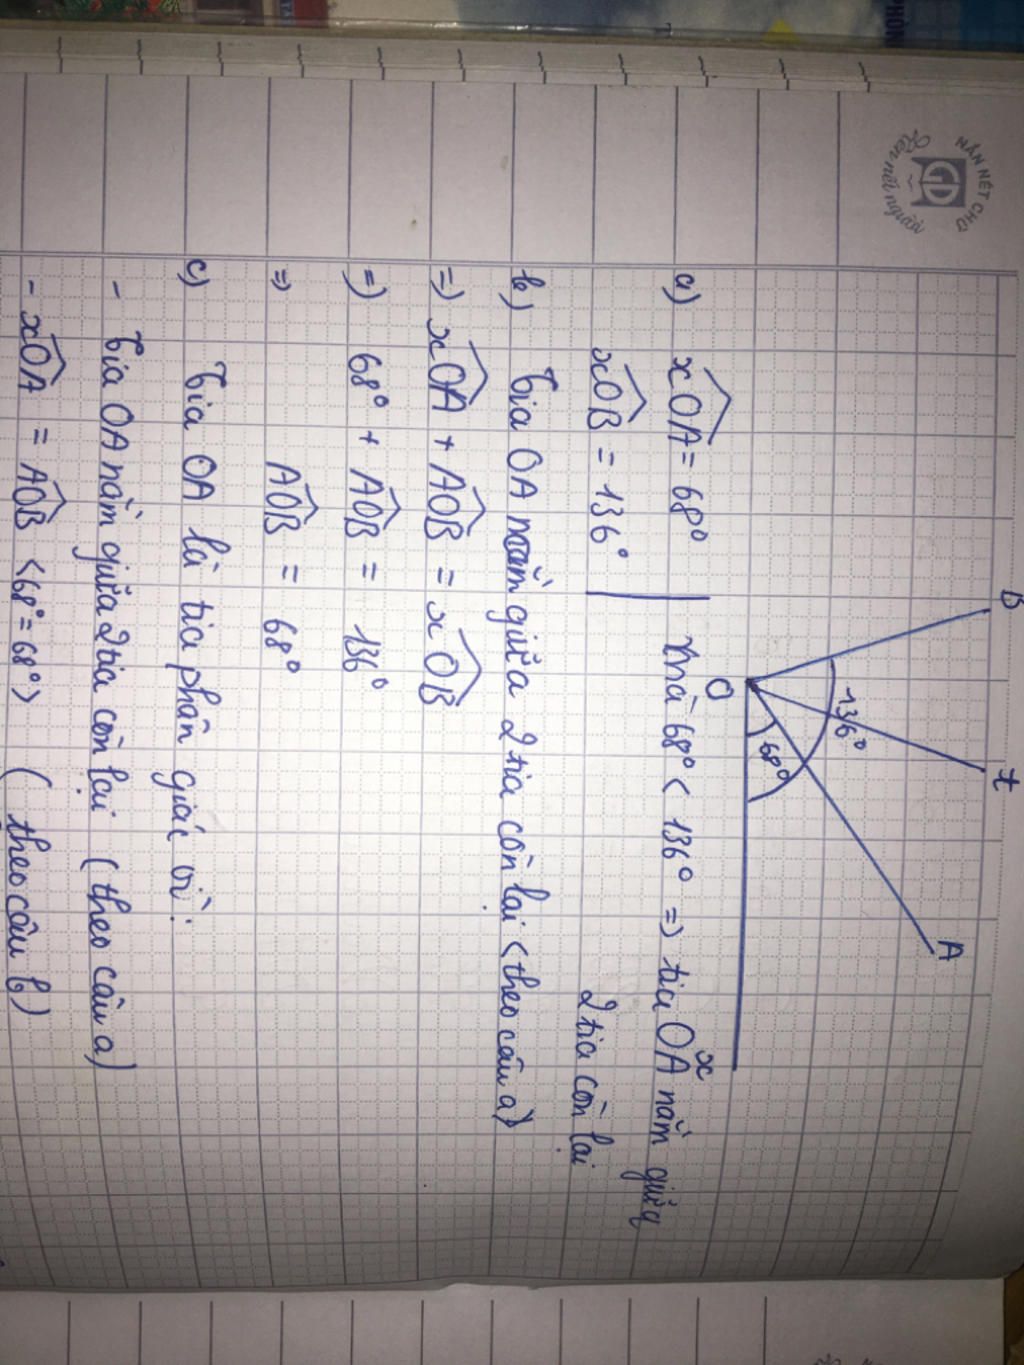 NẮN NÉT CHỮ
GD
Rèn nết người
B
t
A
136°
68°
O
x
a) xOA = 68°
xOB = 136°
mà 68° < 136° => tia OA nằm giữa
2 tia còn lại
b) Tia OA nằm giữa 2 tia còn lại <theo câu a)
=> xOA + AOB = xOB
=> 68° + AOB = 136°
=> AOB = 68°
c) Tia OA là tia phân giác vì:
- Tia OA nằm giữa 2 tia còn lại (theo câu a)
- xOA = AOB <68° = 68°> (theo câu b)